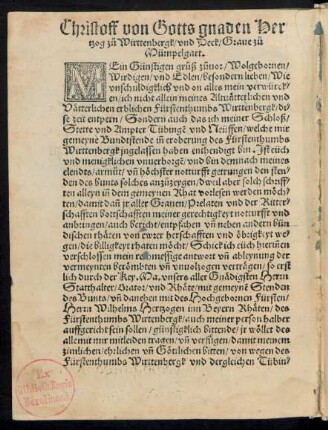 Christoff von Gotts gnaden Her
tzog zů Wirttenbergk/ vnd Teck/ Graue zů
Mümpelgart.
MEin Günstigen grůß zůuor/ Wolgebornen/
Wirdigen/ vnd Edlen/ besondern lieben/ Wie
vnschuldigklich vnd on alles mein verwürck
en/ ich nicht allein meines Altvätterlichen vnd
Vätterlichen erblichen Fürstenthumbs Wirttenbergk/ dy
se zeit entpern/ Sondern auch das ich meiner Schloß/
Stette vnd Ampter Tübingē vnd Neüffen/ welche mir
gemeyne Bundtstende in eroberung des Fürstenthumbs
Wirttenbergk zůgelassen haben enthendigt bin/ Ist euch
vnd menigklichen vnuerborgē/ vnd bin demnach meines
elendts/ armůt/ vñ höchster notturfft getrungen den sten/
den des bunts solches anzůzeygen/ dweil aber solch schriff/
ten alleyn in dem gemeynen Rhat vorlesen werden möch/
ten/ damit dañ jr aller Grauen/ Prelaten vnd der Ritter
schafften bottschafften meiner gerechtigkeyt notturfft vnd
anbringen/ auch bericht/ entpfahen vñ neben andern bün
dischen rhäten von ewer herschafften vnd öbrigkeyt we
gen/ die billigkeyt rhaten möcht/ Schick ich euch hierinen
verschlossen mein rechtmessige antwort vñ ableynung der
vermeynten berömbten vñ vnuolzogen verträgen/ so erst
lich durch der Key. Ma. vnsers aller Gnädigsten Herrn
Statthalter/ Orator/ vnd Rhäte/ mit gemeynē Stenden
des Bunts/ vñ danehen mit des Hochgebornen Fürsten/
Herrn Wilhelms Hertzogen inn Beyern Rhäten/ des
Fürstenthumbs Wirttenbergk/ auch meiner person halber
auffgericht sein sollen/ günstigklich bittende/ jr wöllet des
alles mit mir mitleiden tragen/ vñ verfügen/ damit meinem
zimlichen/ ehrlichen vñ Götlichen bitten/ von wegen des
Fürstenthumbs Wirttenbergk vnd dergleichen Tübin/
Ex
Bibliotheca Regia
Berolinensi